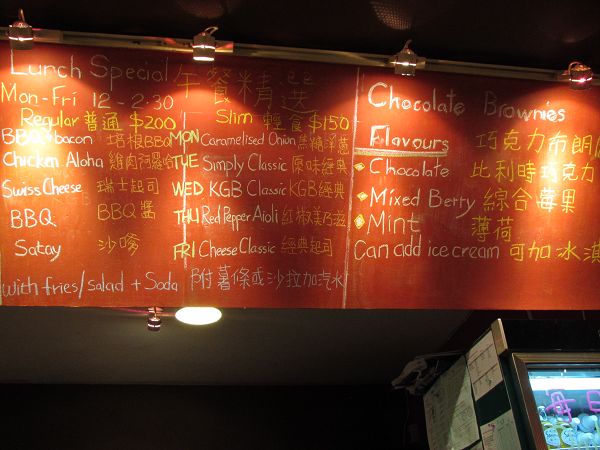 Lunch Special 午餐精選
Mon-Fri 12-2:30
Regular 普通 $200
BBQ bacon 培根BBQ
Chicken Aloha 雞肉阿羅哈
Swiss Cheese 瑞士起司
BBQ BBQ 醬
Satay 沙嗲
Slim 輕食 $150
MON Caramelised Onion 焦糖洋蔥
TUE Simply Classic 原味經典
WED KGB Classic KGB經典
THU Red Pepper Aioli 紅椒美乃滋
FRI Cheese Classic 經典起司
with fries/salad + Soda 附薯條或沙拉加汽水
Chocolate Brownies
Flavours 巧克力布朗
Chocolate 比利時巧克力
Mixed Berry 綜合莓果
Mint 薄荷
Can add ice cream 可加冰淇
每日